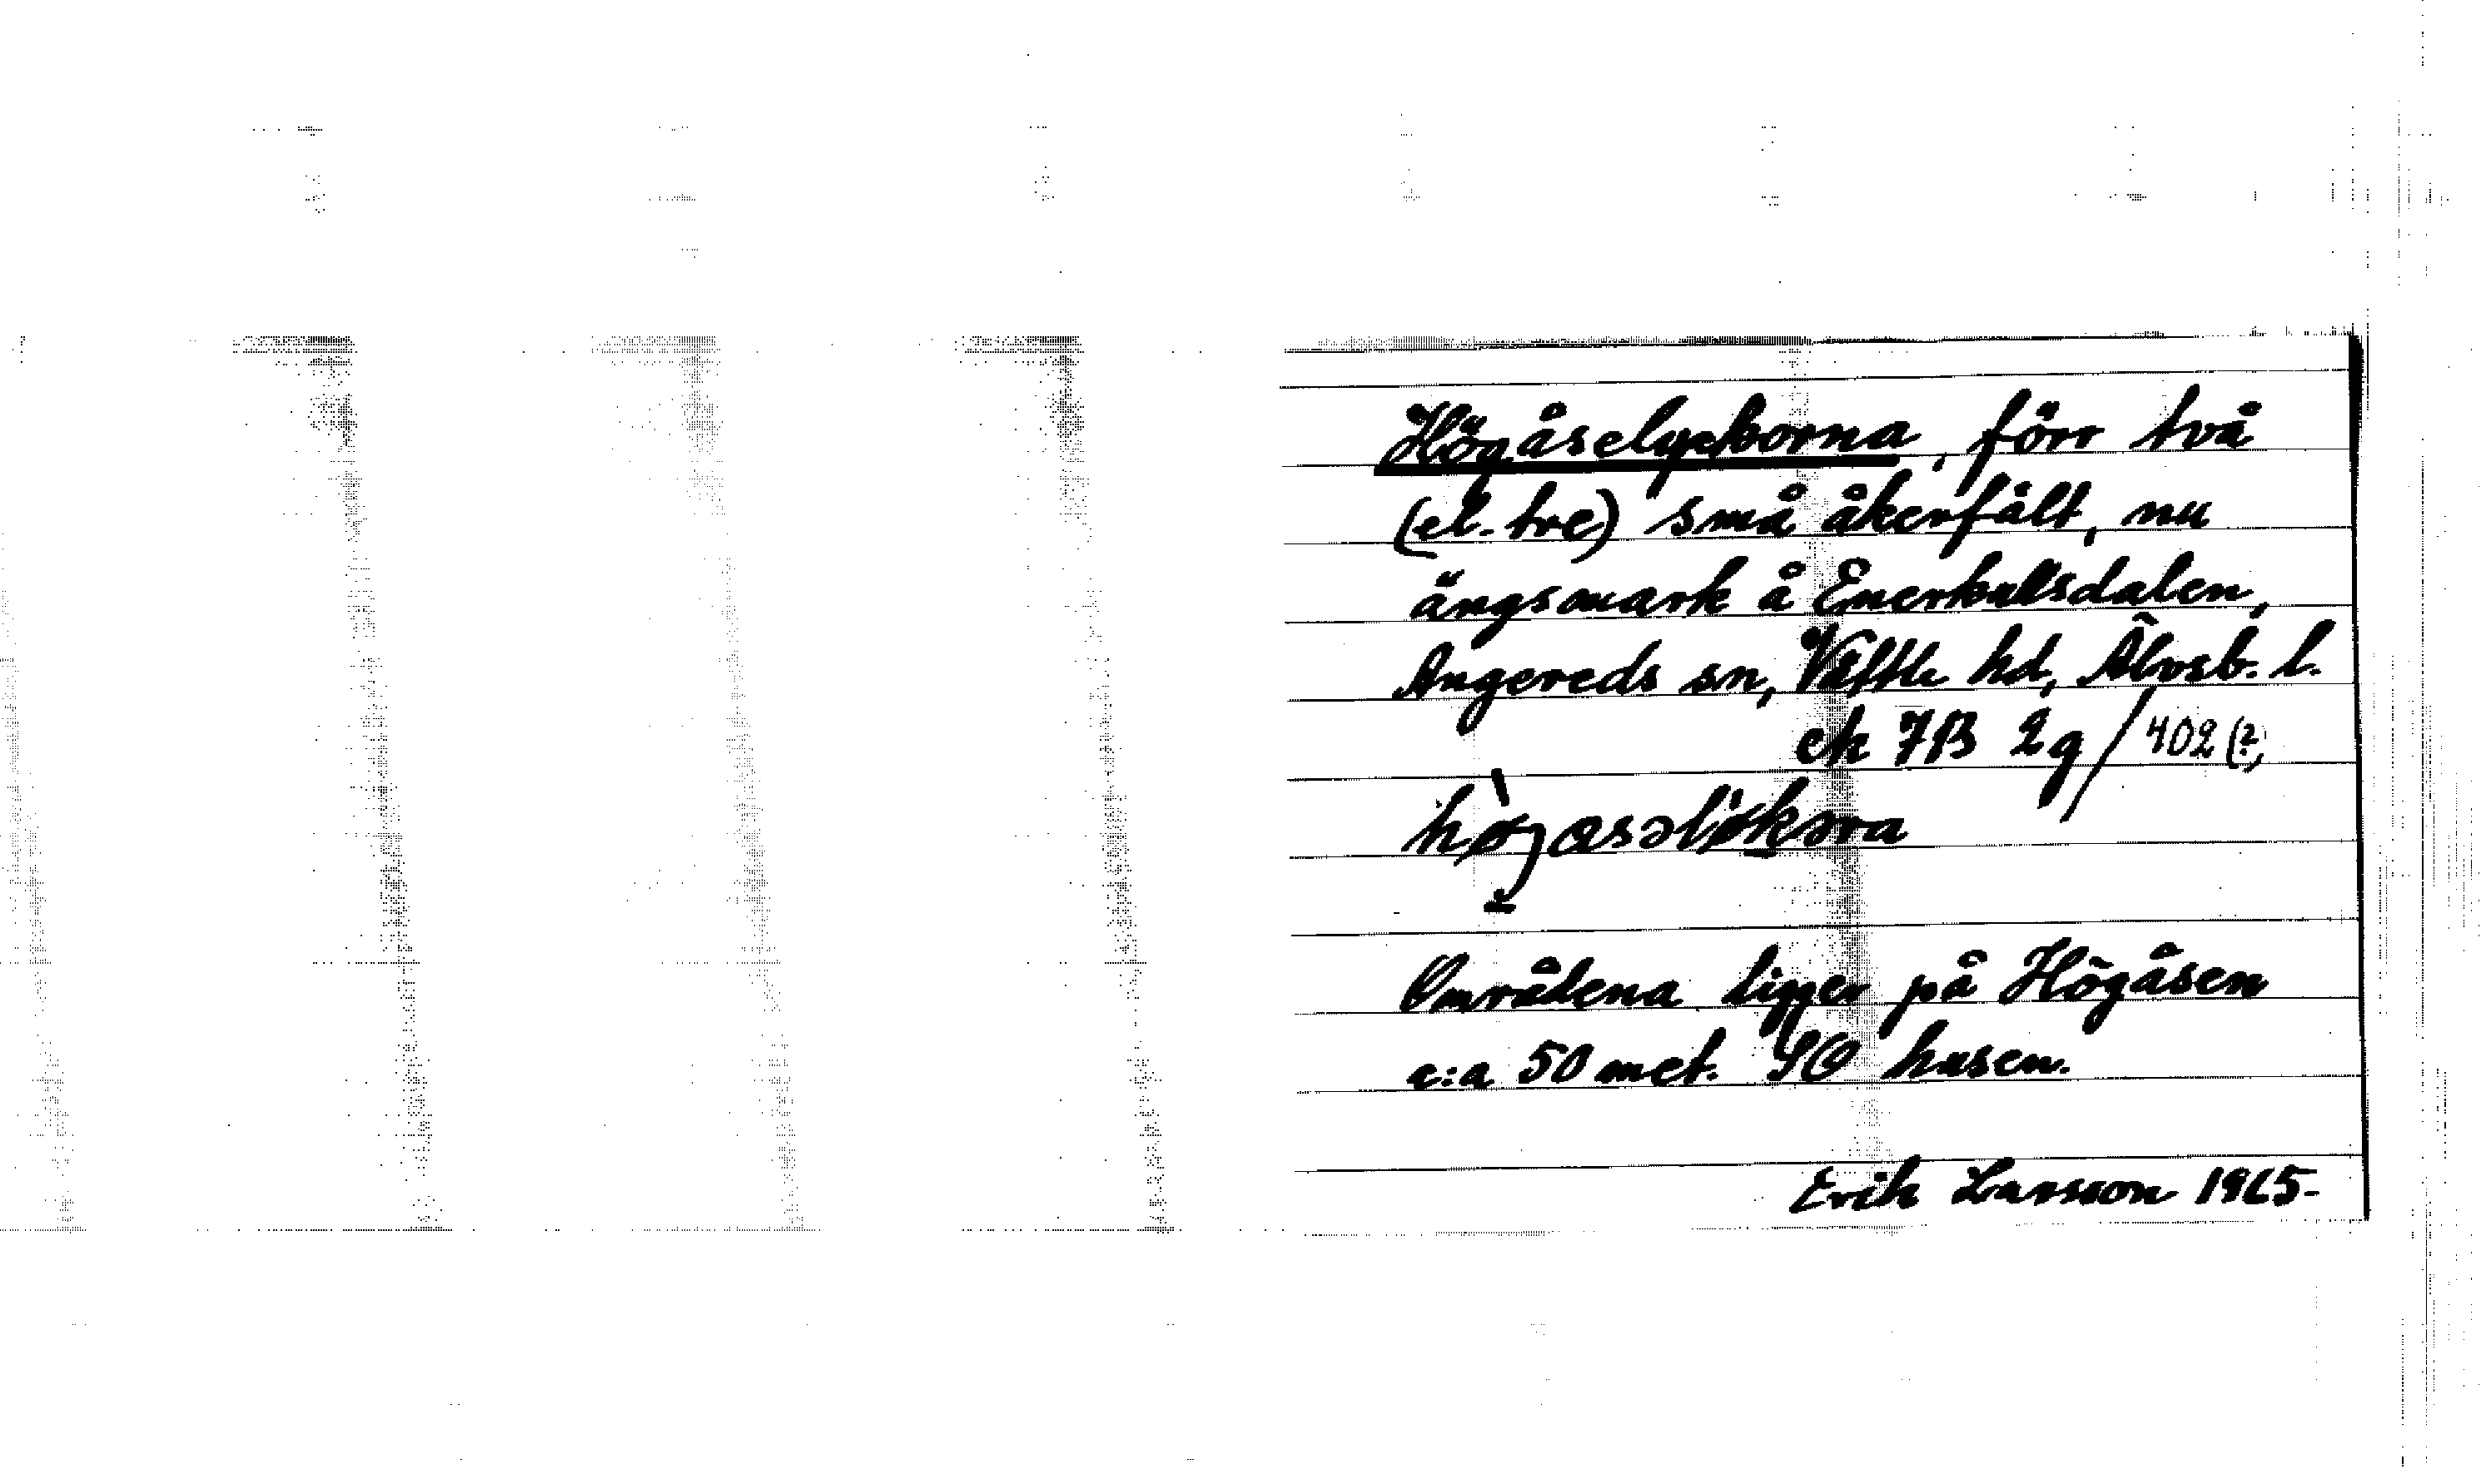 Högåselyckorna, förr två
(el. tre) små åkerfält, nu
ängsmark å Emerkullsdalen,
Angereds sn, Vättle hd, Älvsb. l.
ek 7B 2g/402(?)
Områdena ligger på Högåsen
c:a 50 met. SO husen.
Erik Larsson 1965.